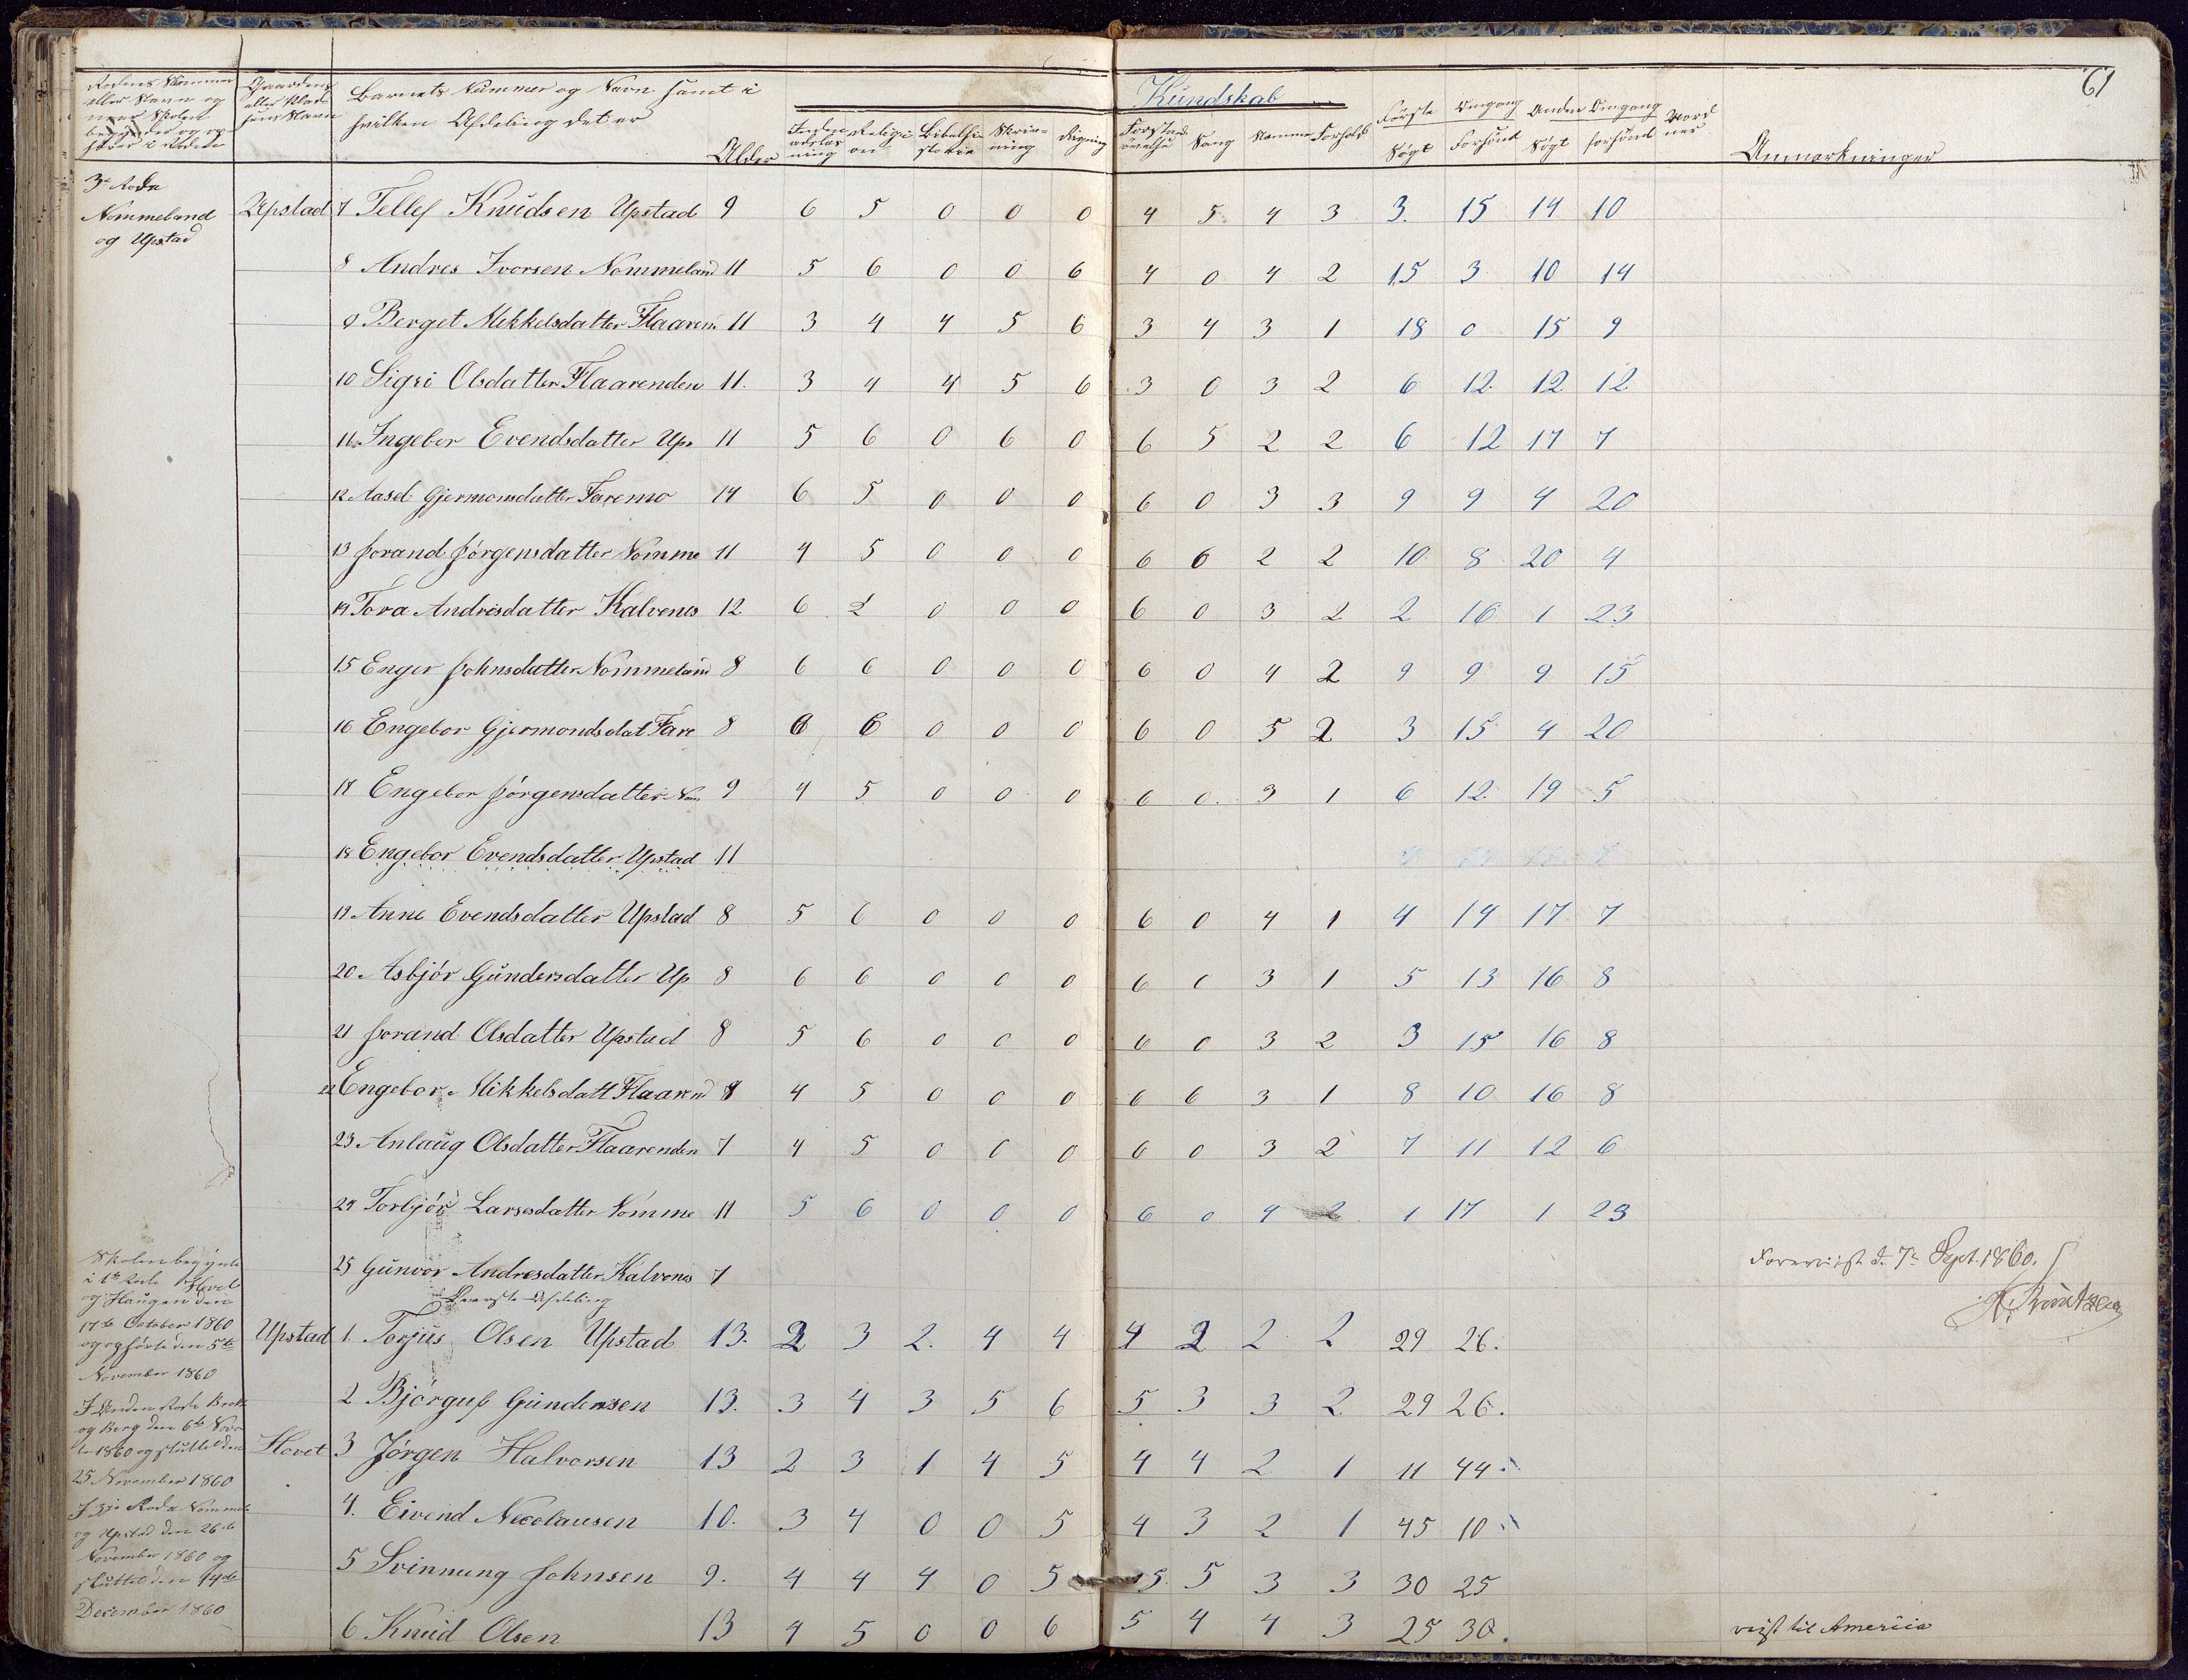 61
Kundskab
Rodens Nummer
eller Navn og
naar Skolen
begynder og op-
hører i Roden
Gaardens
eller Plad-
sens Navn
Barnets Nummer og Navn samt i
hvilken Afdeling det er
Alder
Religi-
on
Bibelhi-
storie
Skriv-
ning
Regning
Forstands
øvelse
Sang
Nemme
Forhold
Første Omgang
Søgt Forsømt
Anden Omgang
Søgt forsømt
Anmærkninger
3die Rode
Nommeland
og Upstad
Upstad 7 Tellef Knudsen Upstad 9 6 5 0 0 0 4 5 4 3 3. 15 14 10
8 Andres Ivorsen Nommeland 11 5 6 0 0 6 4 0 4 2 15 3 10 14
9 Berget Mekkelsdatter Flaaren 11 3 4 4 5 6 3 4 3 1 18 0 15 9
10 Sigri Olsdatter Flaarenden 11. 3 4 4 5 6 3 0 3 2 6 12 12 12
11 Ingebor Evendsdatter Ups 11 5 6 0 6 0 6 5 2 2 6 12 17 7
12 Aasel Gjermonsdatter Faremo 14 6 5 0 0 0 6 0 3 3 9 9 4 20
13 Jorand Jörgensdatter Nomme 11 4 5 0 0 0 6 6 2 2 10 8 20 4
14 Tora Andresdatter Kalvenes 12 6 2 0 0 0 6 0 3 2 2 16 1 23
15 Enger Johnsdatter Nommeland 8 6 6 0 0 0 6 0 4 2 9 9 9 15
16 Engebor Gjermondsdat Fare 8 6 6 0 0 0 6 0 5 2 3 15 4 20
17 Engebor Jörgensdatter Nom 9 4 5 0 0 0 6 0. 3 1 6 12 19 5
18 Engebor Evendsdatter Upstad 11
19 Anne Evendsdatter Upstad 8 5 6 0 0 0 6 0 4 1 4 14 17 7
20 Asbjör Gundersdatter Up 8 6 6 0 0 0 6 0 3 1 5 13 16 8
21 Jorand Olsdatter Upstad 8 5 6 0 0 0 6 0 3 2 3 15 16 8
22 Engebor Mikkelsdatt Flaarend 8 4 5 0 0 0 6 6 3 1 8 10 16 8
23 Anlaug Olsdatter Flaarenden 7 4 5 0 0 0 6 0 3 2 7 11 12 6
24 Torbjör Larsesdatter Nomme 11 5 6 0 0 0 6 0 4 2 1 17 1 23
25 Gunvor Andresdatter Kalvenes 7
Foreviist d. 7de Sept. 1860.
Skolen begynte
i 1te Rode Hovet
og Haugen den
17de October 1860
og ophørte den 5te
November 1860
I Anden Rode Brotte
og Berg den 6te Nov
br 1860 og sluttet den
25 November 1860
I 3die Rode Nommel
og Upstad den 26de
November 1860 og
sluttet den 14de
December 1860
Øverste Afdeling
Upstad 1. Torjus Olsen Upstad 13. 2 3 2. 4 4 4 2 2 2 29 26.
2 Björguf Gundersen 13. 3 4 3 5 6 5 3 3 2 29 26.
Hovet 3 Jörgen Halvorsen 13 2 3 1 4 5 4 4 2 1 11 44
4. Eivend Necolausen 10. 3 4 0 0 5 4 3 2 1 45 10
5 Svinnung Johnsen 9. 4 4 4 0 5 5. 5 3 3 30 25
6 Knud Olsen 13 4 5 0 0 6 5 4 4 3 25 30. reist til Amerika